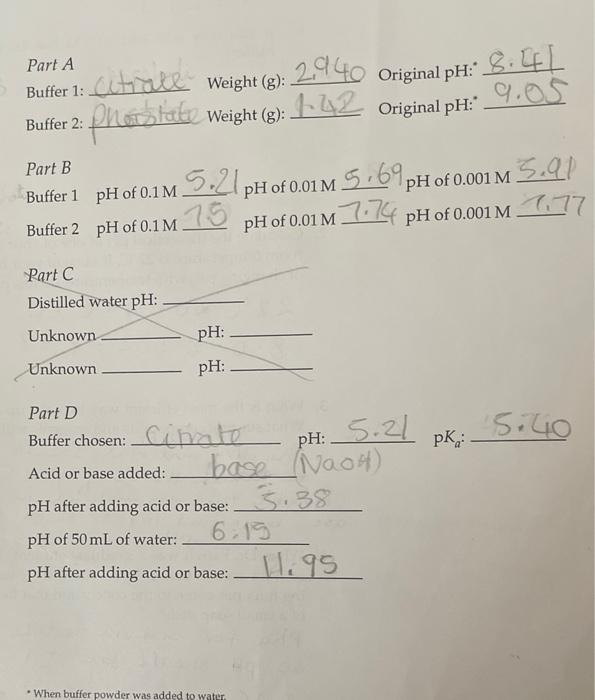 Part A
Buffer 1: Citrate Weight (g): 2.940 Original pH:* 8.41
Buffer 2: Phosphate Weight (g): 1.42 Original pH:* 9.05
Part B
Buffer 1 pH of 0.1 M 5.21 pH of 0.01 M 5.69 pH of 0.001 M 5.91
Buffer 2 pH of 0.1 M 7.5 pH of 0.01 M 7.74 pH of 0.001 M 7.77
Part C
Distilled water pH:
Unknown pH:
Unknown pH:
Part D
Buffer chosen: Citrate pH: 5.21 pKa: 5.40
Acid or base added: base (NaOH)
pH after adding acid or base: 5.38
pH of 50 mL of water: 6.15
pH after adding acid or base: 11.95
* When buffer powder was added to water.